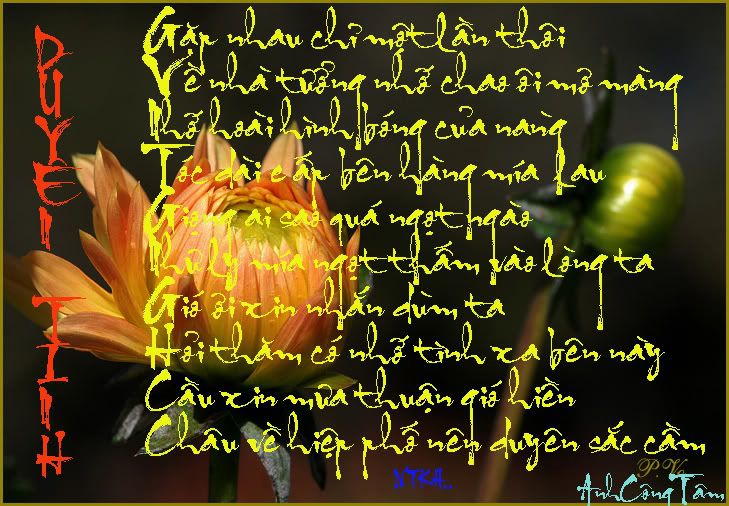 DUYEI TIIH
Gặp nhau chỉ một lần thôi
Về nhà tưởng nhớ chao ôi mơ màng
Nhớ hoài hình bóng của nàng
Tóc dài cấp bên hàng mía lau
Giọng ai sao quá ngọt ngào
Như ly mía ngọt thấm vào lòng ta
Gió ơi xin nhắn dùm ta
Hỏi thăm có nhớ tình xa bên này
Cầu xin mưa thuận gió hiền
Châu về hiệp phố nên duyên sắc cầm
NTKH..
P
AnhCôngTâm